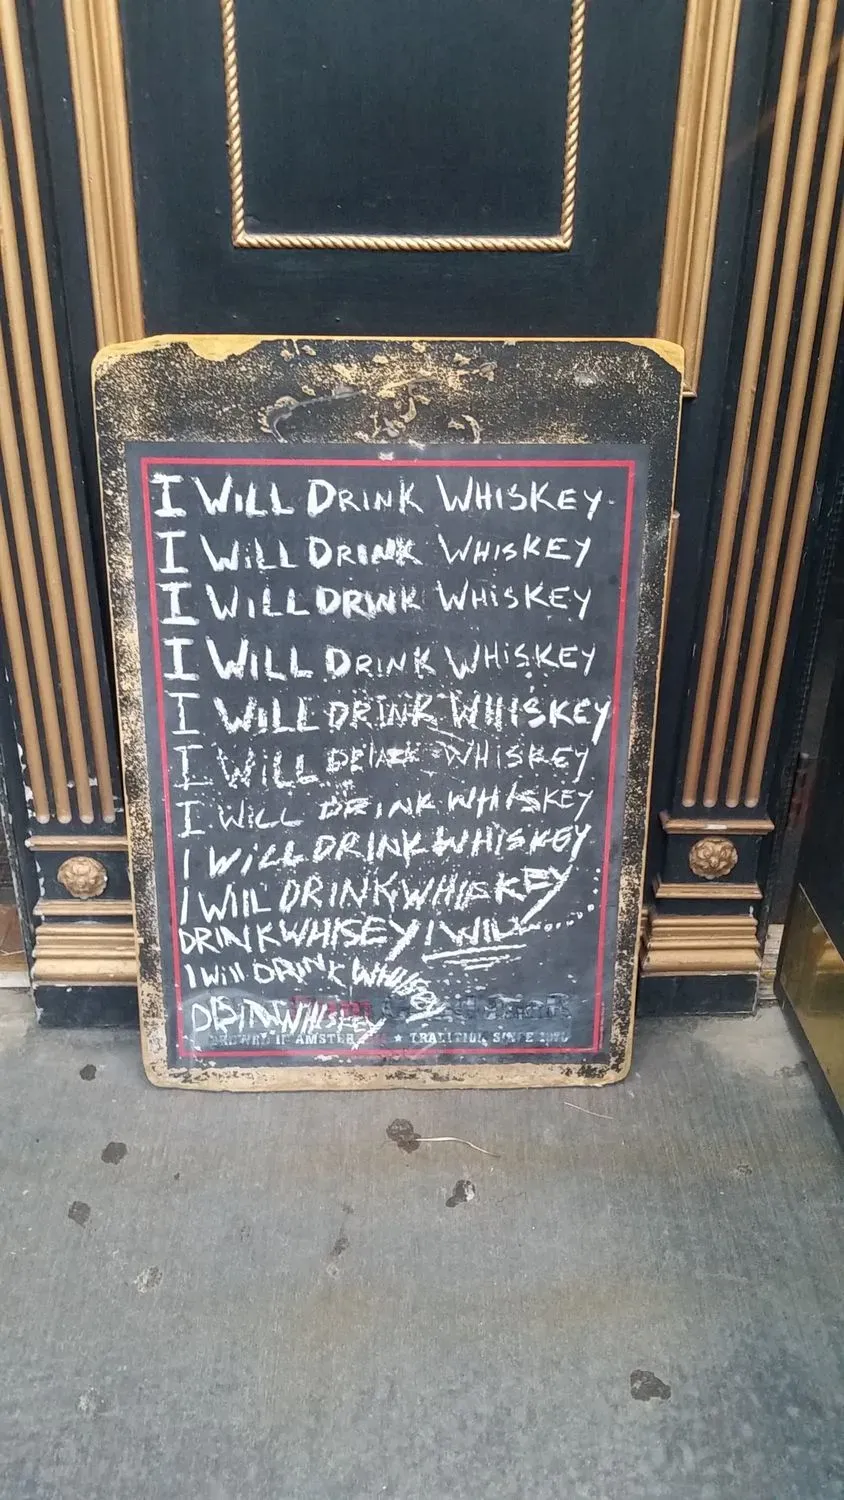 I WILL DRINK WHISKEY
I WILL DRINK WHISKEY
I WILL DRINK WHISKEY
I WILL DRINK WHISKEY
I WILL DRINK WHISKEY
I WILL DRINK WHISKEY
I WILL DRINK WHISKEY
I WILL DRINK WHISKEY
I WILL DRINK WHISKEY
DRINK WHISEY I WILL......
I WILL DRINK WHISKEY
DRINWHISKEY
TRADITION SINCE